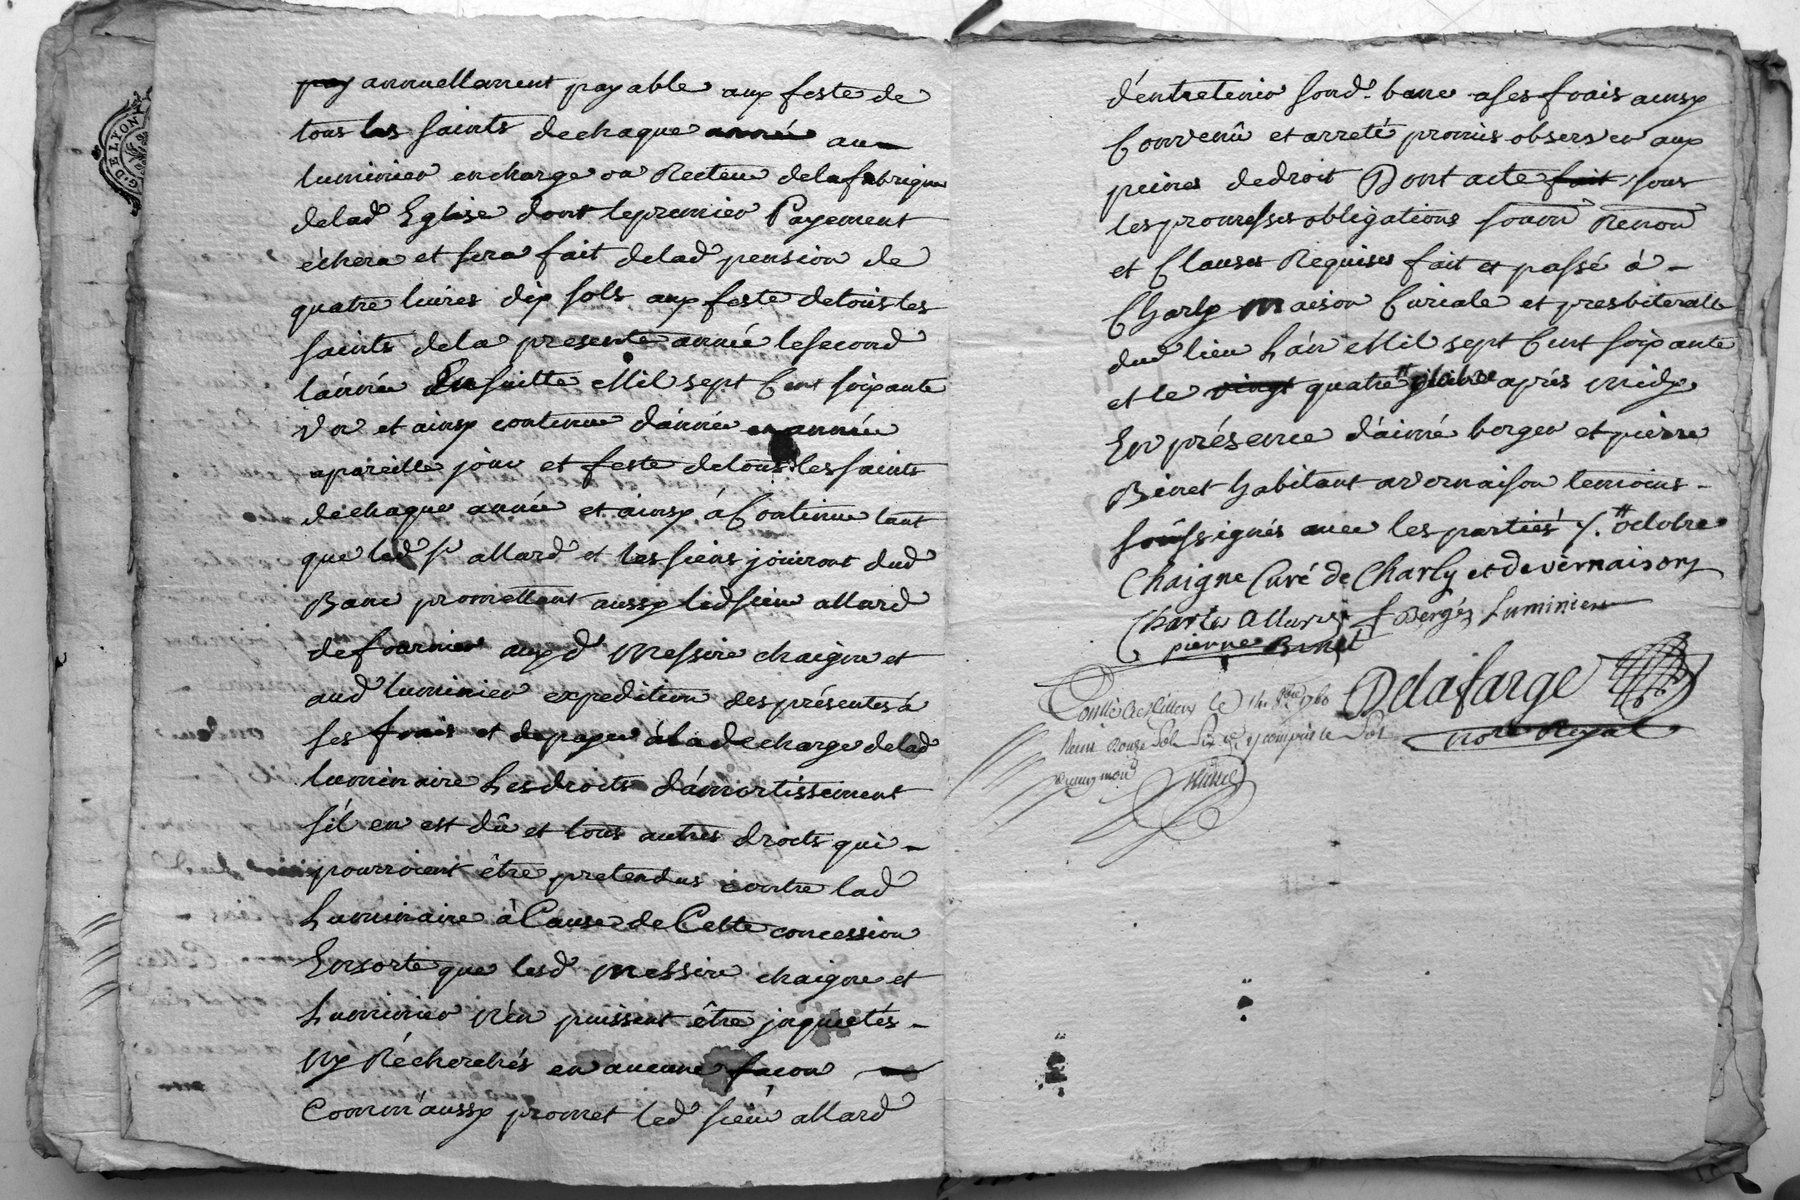 G. DE LYON
pay annuellement payable aux feste de
tous les saints de chaque année au
luminier en charge ou Recteur de la fabrique
de lad Eglise dont le premier Payement
échera et sera fait de lad pension de
quatre livres dix sols aux feste de tous les
saints de la presente année le second
l'année Ensuitte Mil sept Cent soixante
et ainsy continuer d'année en année
a pareille jour et feste de tous les saints
de chaque année et ainsy à Continuer tant
que led sr allard et les siens jouiront dud
Banc promettant aussy led sieur allard
de fournir auxd Messire chaigne et
aud luminier expedition des présentes à
ses frais et de payer à la decharge de lad
luminaire Les droits d'amortissement
s'il en est dû et tous autres droits qui
pourroient être pretendus contre lad
Luminaire à Cause de Cette concession
Ensorte que lesd Messire chaigne et
Luminier n'en puissent être jnquietés
ny Récherchés en aucune façon
Comm'aussy promet led sieur allard
d'entretenir sond. banc a ses frais ainsy
Convenû et arreté promis observer aux
peines de droit Dont acte fait sous
les promesses obligations soum Renon
et Clauses Requises fait et passé à
Charly Maison Curiale et presbiteralle
dud lieu L'an Mil sept Cent soixante
et le vingt quatre après midy
En présence d'aimé berger et pierre
Binet habitant a vernaison temoins
soussignés avec les parties /. octobre
Chaigne Curé de Charly et de vernaison
Charle Allard f Bergér Luminier
pierre Binet
Conllé à Millery le 14 8bre 1760 Delafarge
Reçu Douze Sols Six d y compris le Not Royal